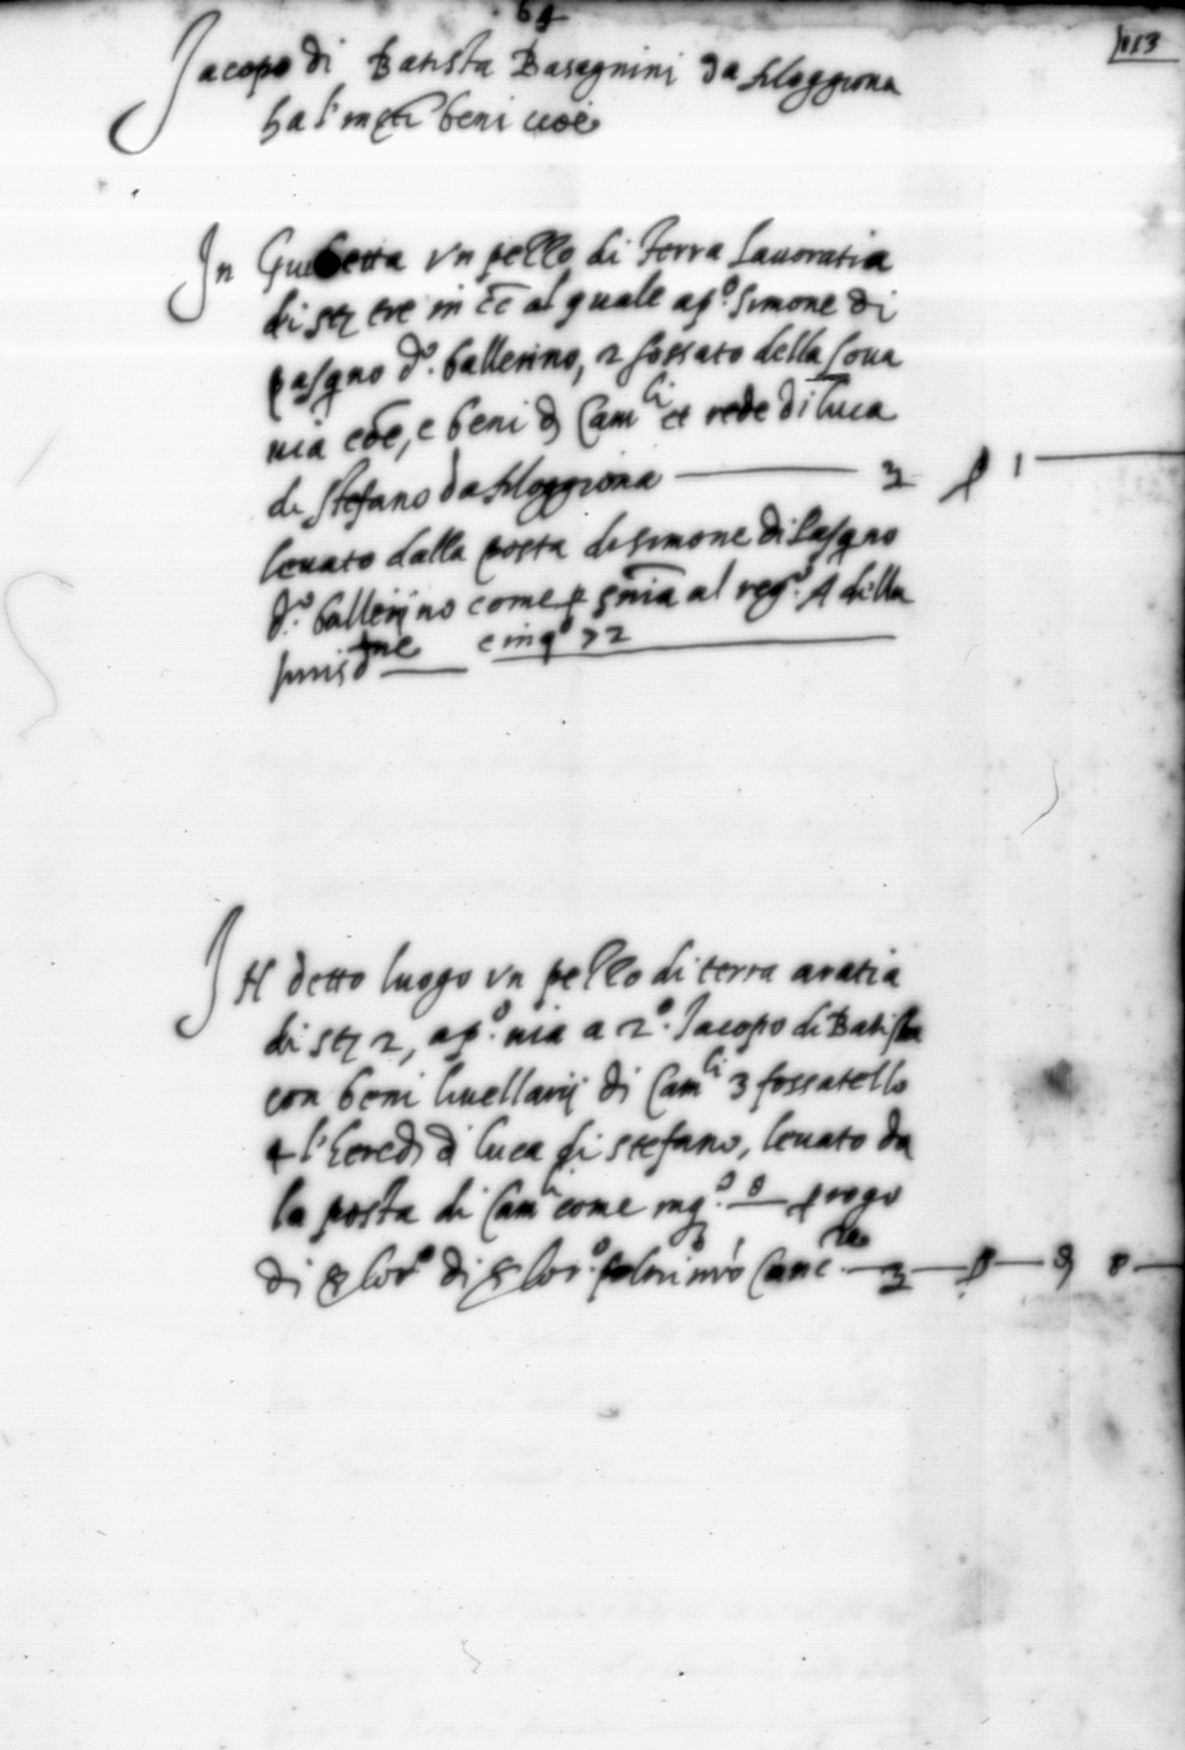 64
113
Jacopo di Batista Basagnini da Moggiona
ha l'inftti beni cioè
In Guetta un pezzo di terra lavoratia
di str tre in cc al quale ap.º Simone di
pasqno d.º ballerino, 2 fossato della
via cõe, e beni d Cam.li et rede di luca
di Stefano da Moggiona — 3 1
levato dalla posta di simone di Pasqno
d.º ballerino come p al reg.º A della
e in qº 72
IN detto luogo un pezzo di terra aratia
di str 2, ap.º via a 2.º Jacopo di Batista
con beni livellarij di Cam.li 3 fossatello
4 l'heredi di luca di stefano, levato da
la posta di Cam.li come inq.º 8 p rogo
di lor.º di lor.º Canc.re — 3 — 8